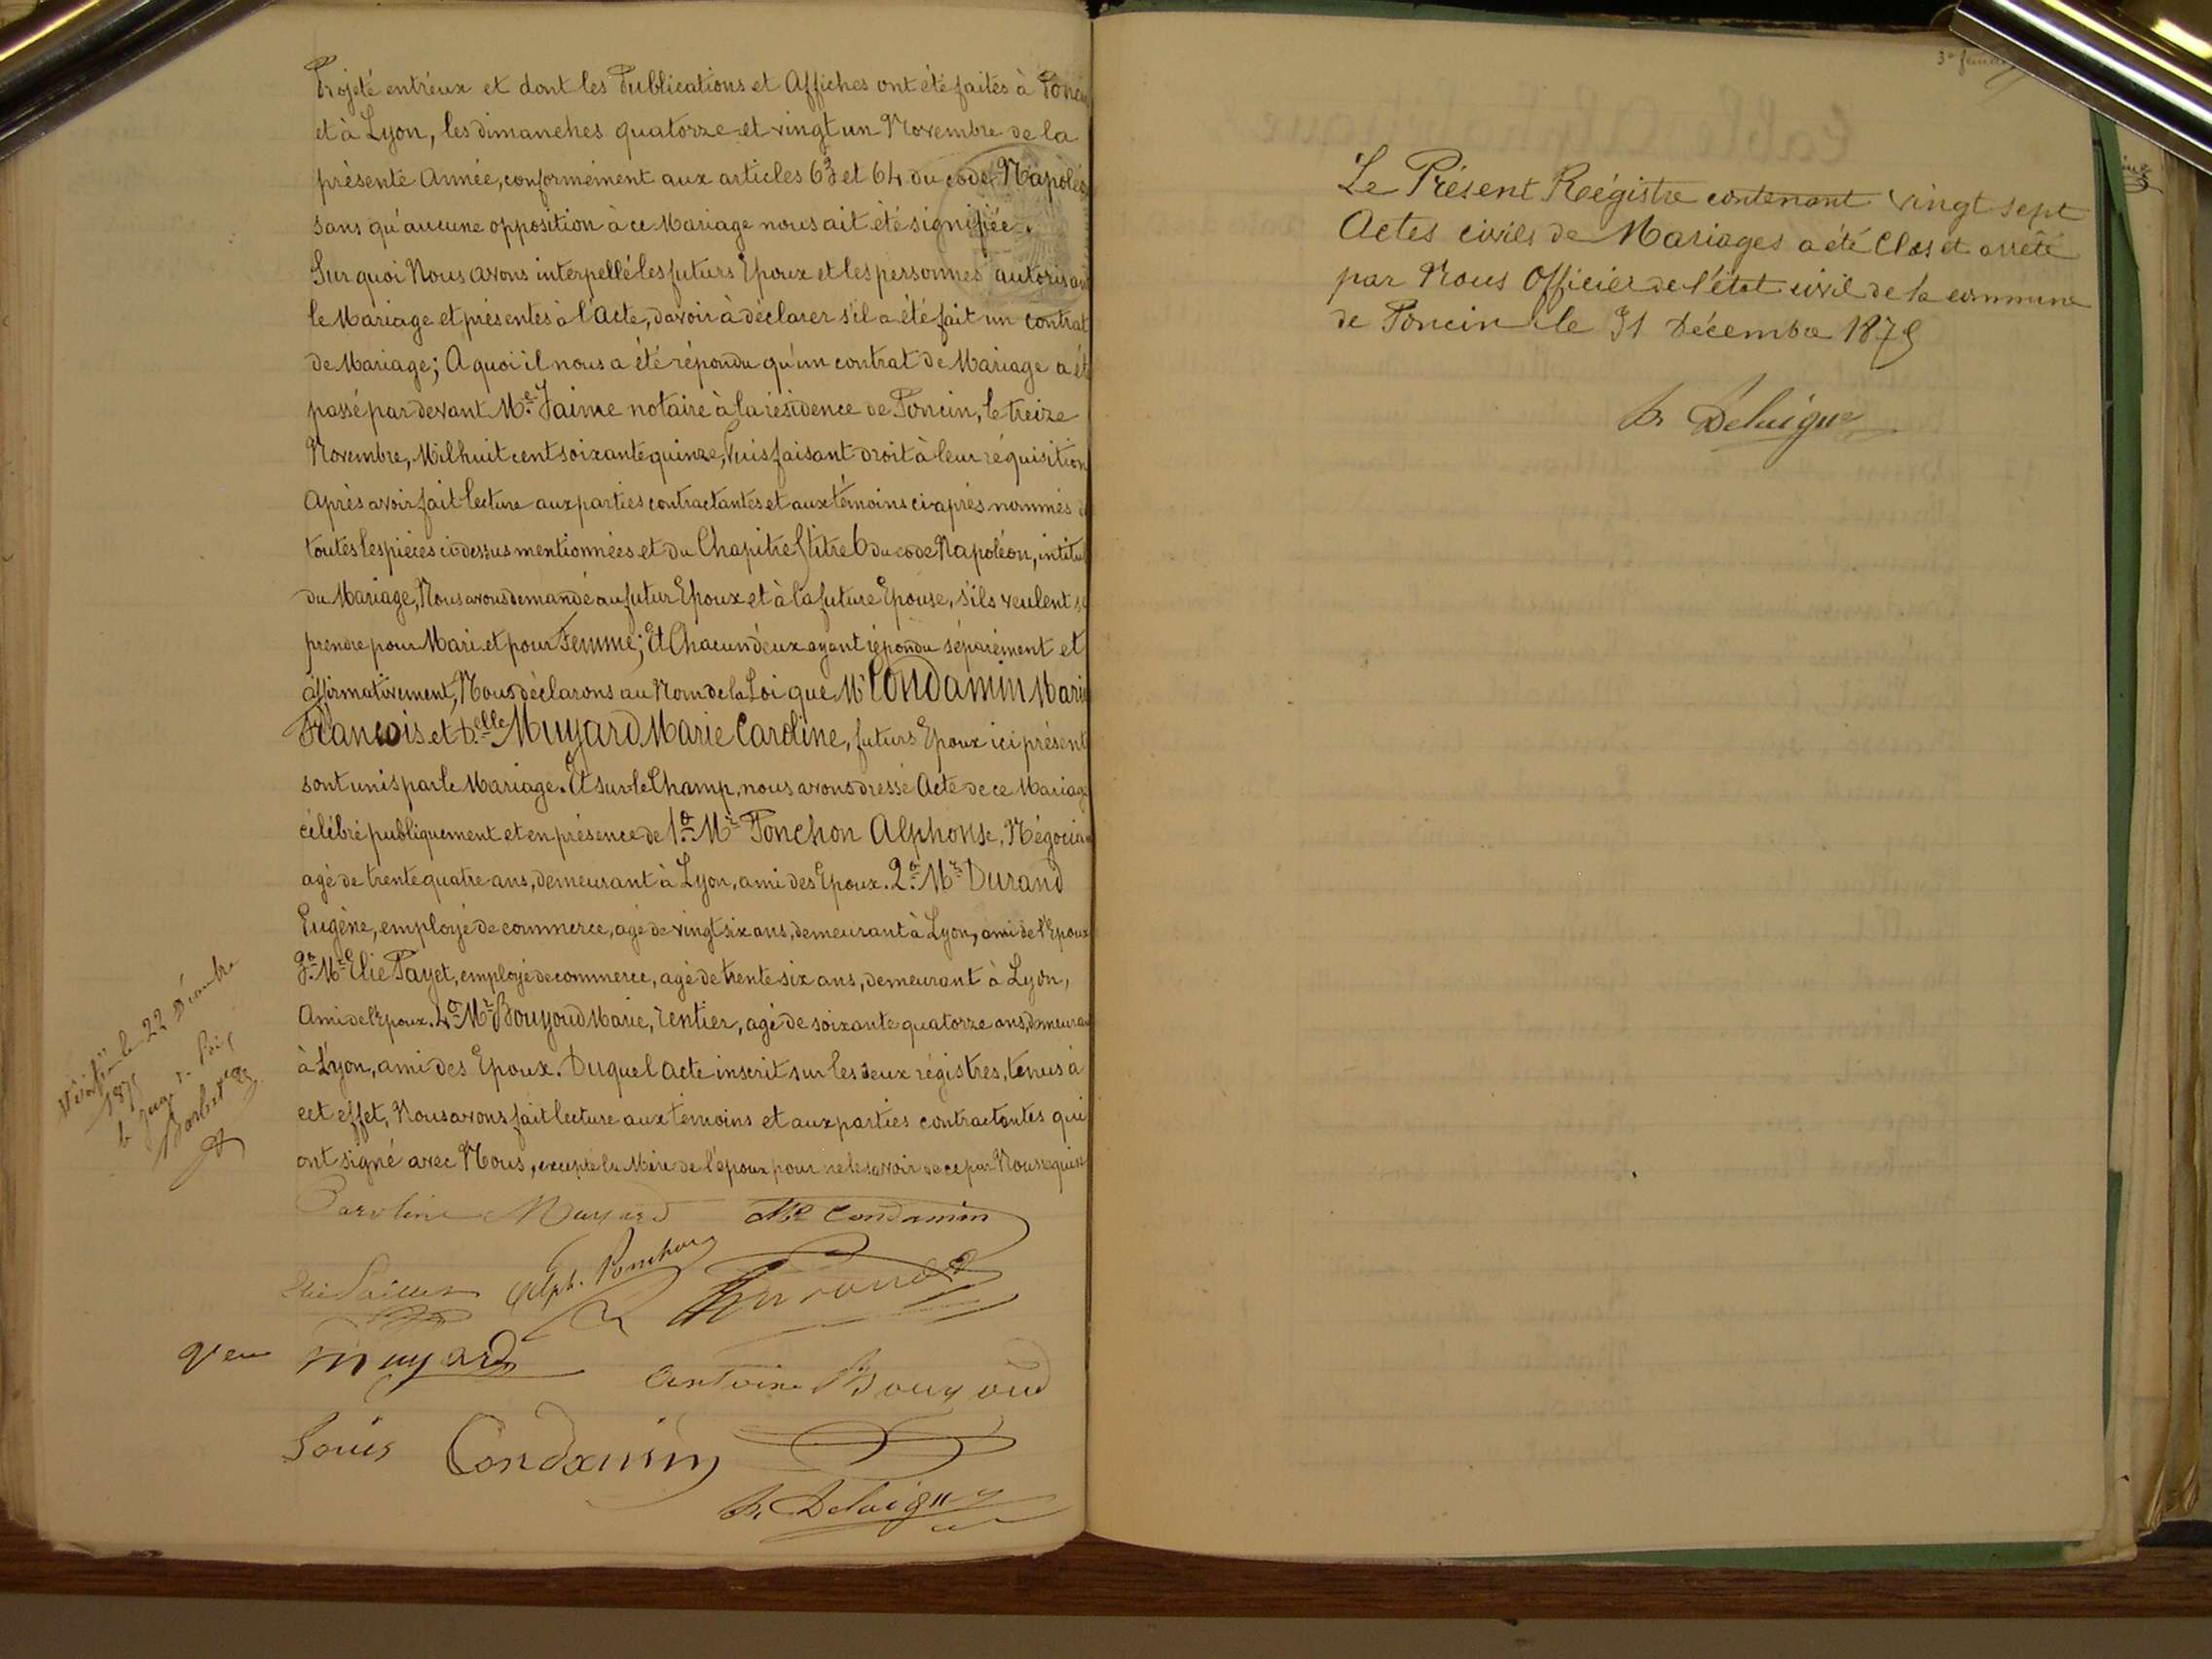 Projeté entréux et dont les Publications et Affiches ont été faites à Poncin
et à Lyon, les dimanches quatorze et vingt un Novembre de la
présente Année, conformément aux articles 63 et 64 du code Napoléo
sans qu'aucune opposition à ce Mariage nous ait été signifiée.
Sur quoi Nous avons interpellé les futurs Epoux et les personnes autorisan
le Mariage et présentes à l'Acte, d'avoir à déclarer s'il a été fait un contrat
de Mariage; A quoi il nous a été répondu qu'un contrat de Mariage a ét
passé par devant Me Jaime notaire à la résidence de Poncin, le treize
Novembre, Mil huit cent soixante quinze, Puis faisant droit à leur réquisition
Après avoir fait lecture aux parties contractantes et aux témoins ci-après nommés d
toutes les pièces ci-dessus mentionnées et du Chapitre titre du code Napoléon, intitul
du Mariage, Nous avons demandé au futur Epoux et à la future Epouse, s'ils veulent se
prendre pour Mari et pour Femme; Et Chacun d'eux ayant répondu séparément et
affirmativement, Nous déclarons au Nom de la Loi que Mr Condamin Marie
François et Delle Muyard Marie Caroline, futurs Epoux ici présent
sont unis par le Mariage. Et sur le Champ, nous avons dressé Acte de ce Mariage
célébré publiquement et en présence de 1o Mr Ponchon Alphonse, Négocian
agé de trente quatre ans, demeurant à Lyon, ami des Epoux. 2o Mr Durand
Eugène, employé de commerce, agé de vingt six ans, demeurant à Lyon, ami de l'Epoux
3o Mr Elie Payet, employé de commerce, agé de trente six ans, demeurant à Lyon,
Ami de l'Epoux. 4o Mr Bouyoud Marie, rentier, agé de soixante quatorze ans, demeuran
à Lyon, ami des Epoux. Duquel acte inscrit sur les deux régistres, tenus à
cet effet, Nous avons fait lecture aux témoins et aux parties contractantes qui
ont signé avec Nous, excepté la Mère de l'époux pour ne le savoir de ce par Nous requise
Caroline Muyard Condamin
Alph. Ponchon Durand
Muyard
Antoine Bouyoud
Louis Condamin
Delaigue
le 22 Décembre
1875
le Juge de Paix
Le Présent Régistre contenant vingt sept
Actes civils de Mariages a été Clos et arrêté
par Nous Officier de l'état civil de la commune
de Poncin le 31 Décembre 1875
Delaigue